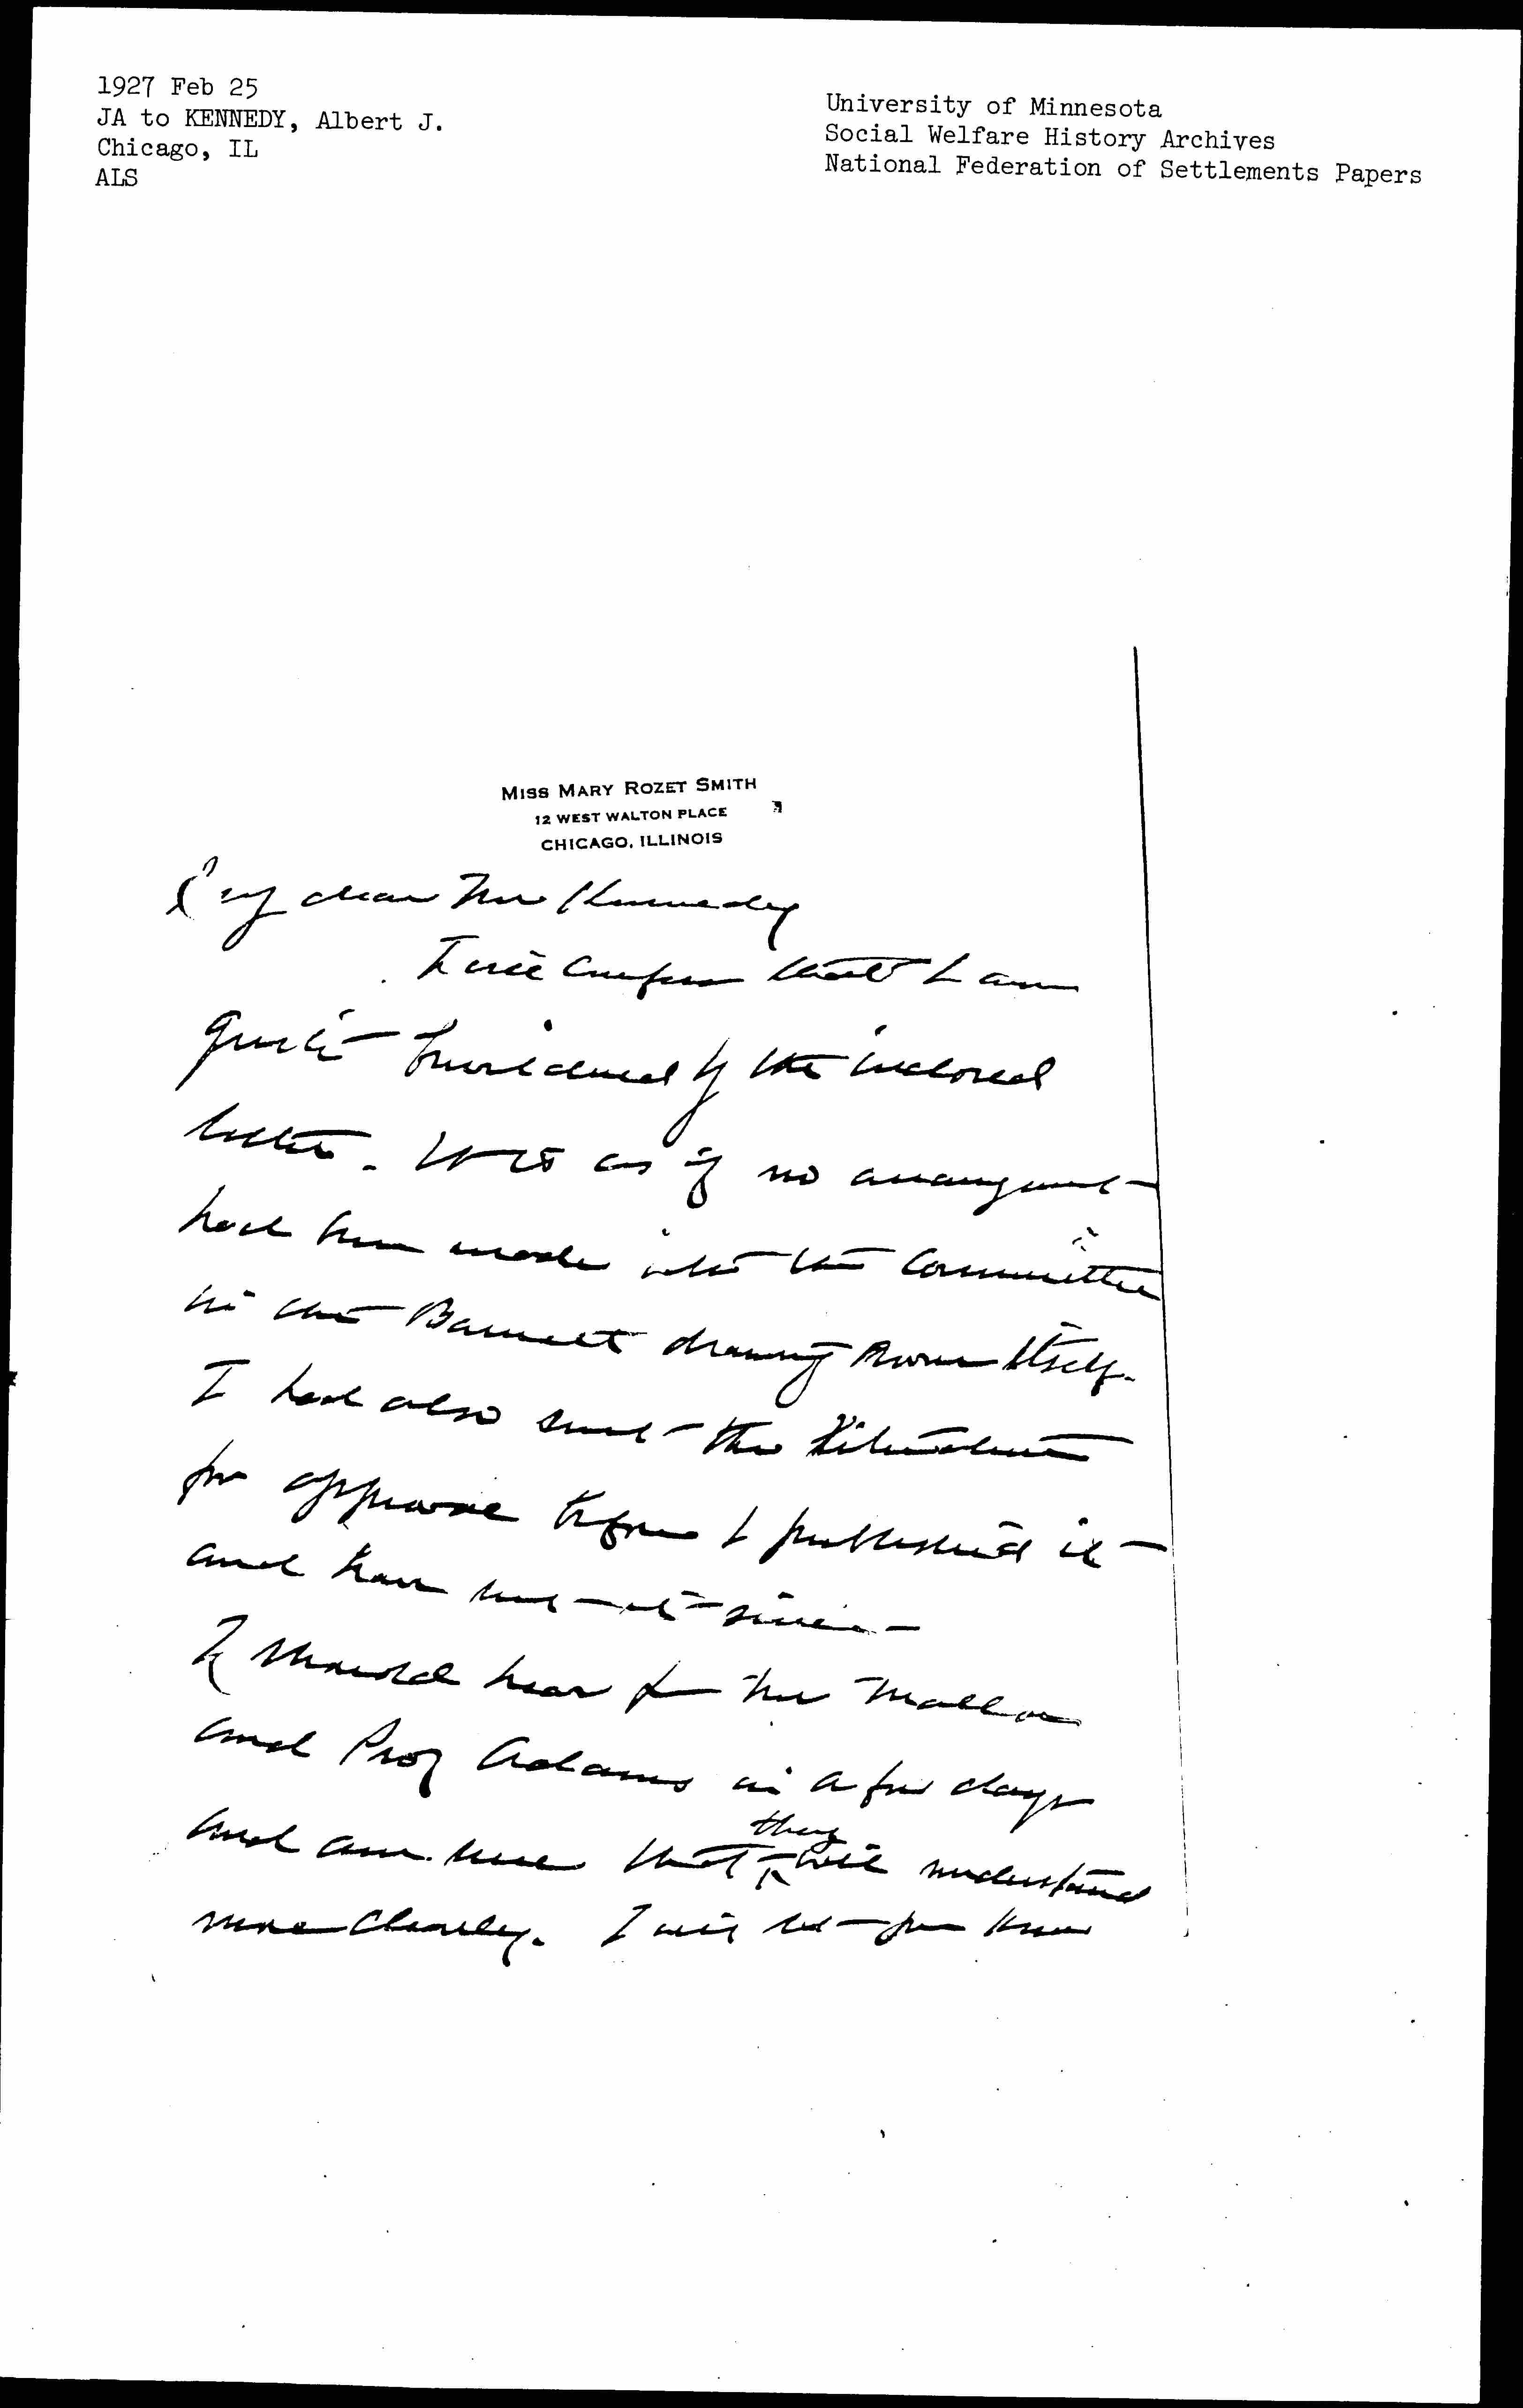 1927 Feb 25
JA to KENNEDY, Albert J.
Chicago, IL
ALS
University of Minnesota
Social Welfare History Archives
National Federation of Settlements Papers
MISS MARY ROZET SMITH
12 WEST WALTON PLACE
CHICAGO, ILLINOIS
My dear Mr Kennedy
I will confess that I am
quite bewildered by the inclosed
letter. It is as if no arrangement
had been made with the Committee
in the Barnett drawing room itself.
I had also sent the
for approval before I published it
and have sent it since
I should hear fr Mr Mallon
and Prof Adams in a few days
and am sure that they will understand
more clearly. I will let you know